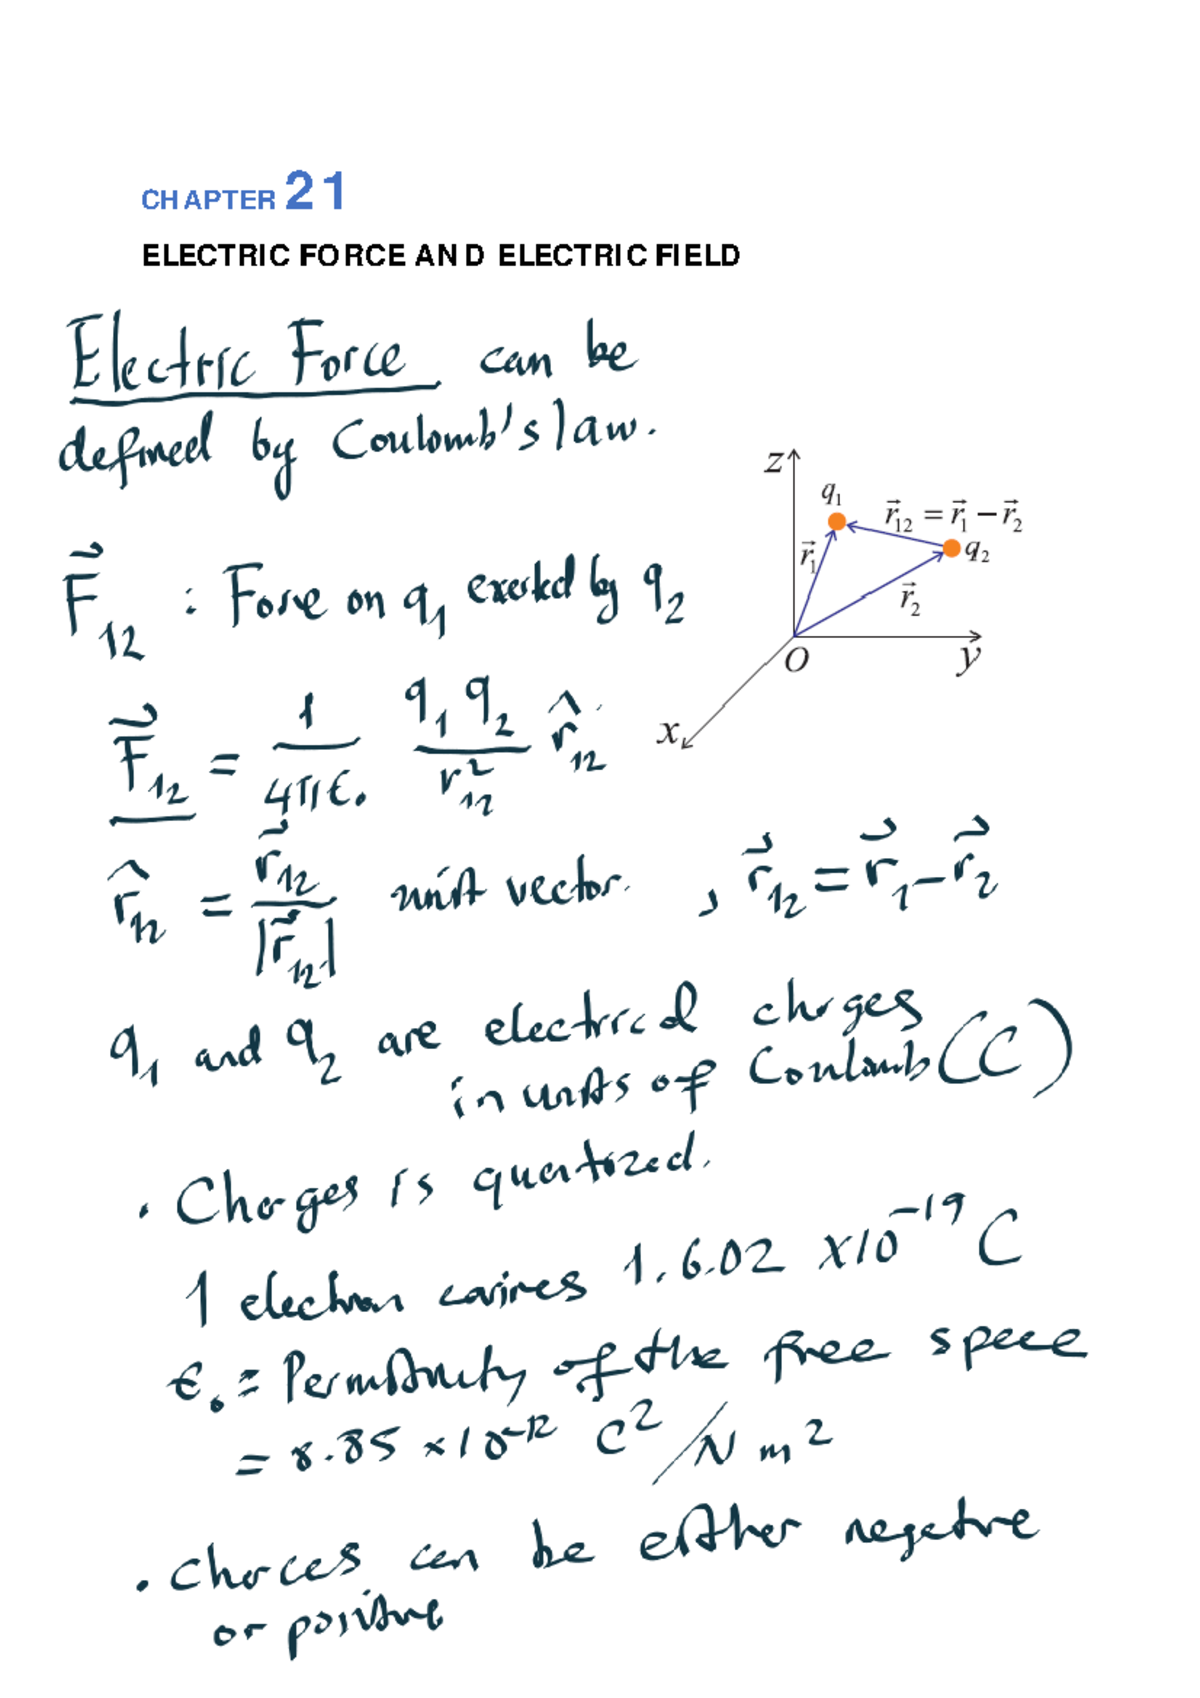 CHAPTER 21
ELECTRIC FORCE AND ELECTRIC FIELD
Electric Force can be
defined by Coulomb's law.
z
q₁
r⃗₁₂ = r⃗₁ − r⃗₂
r⃗₁
q₂
r⃗₂
O
y
x
F⃗₁₂ : Force on q₁ exerted by q₂
F⃗₁₂ = 1/4πϵ₀ q₁q₂/r₁₂² r̂₁₂
r̂₁₂ = r⃗₁₂/|r⃗₁₂| unit vector. , r⃗₁₂ = r⃗₁ − r⃗₂
q₁ and q₂ are electrical charges
in units of Coulomb (C)
• Charges is quantized.
1 electron carries 1.6.02 x10⁻¹⁹ C
ϵ₀ = Permittivity of the free space
= 8.85 x10⁻¹² C²/N m²
• charces can be either negative
or positive